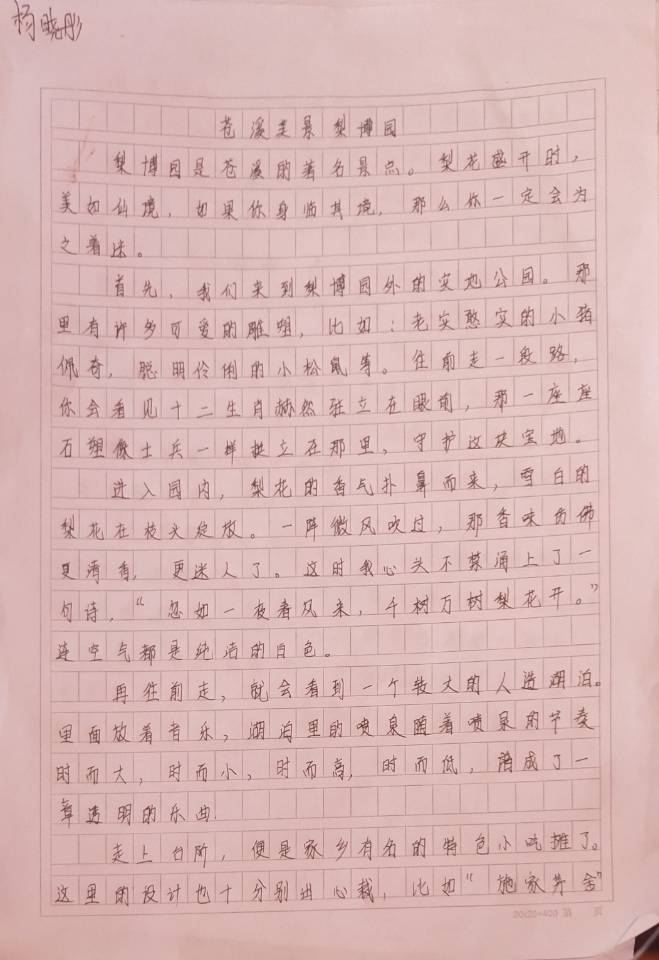 杨晓彤
苍溪美景梨博园
梨博园是苍溪的著名景点。梨花盛开时，
美如仙境，如果你身临其境，那么你一定会为
之着迷。
首先，我们来到梨博园外的实地公园。那
里有许多可爱的雕塑，比如：老实憨实的小猪
佩奇，聪明伶俐的小松鼠等。往前走一段路，
你会看见十二生肖赫然驻立在眼前，那一座座
石塑像士兵一样挺立在那里，守护这块宝地。
进入园内，梨花的香气扑鼻而来，雪白的
梨花在枝头绽放。一阵微风吹过，那香味仿佛
更清香，更迷人了。这时我心头不禁涌上了一
句诗，“忽如一夜春风来，千树万树梨花开。”
连空气都是纯洁的白色。
再往前走，就会看到一个较大的人造湖泊。
里面放着音乐，湖泊里的喷泉随着喷泉的节奏
时而大，时而小，时而高，时而低，谱成了一
章透明的乐曲.
走上台阶，便是家乡有名的特色小吃摊了。
这里的设计也十分别出心裁，比如“施家茅舍”
20×20=400 第 页